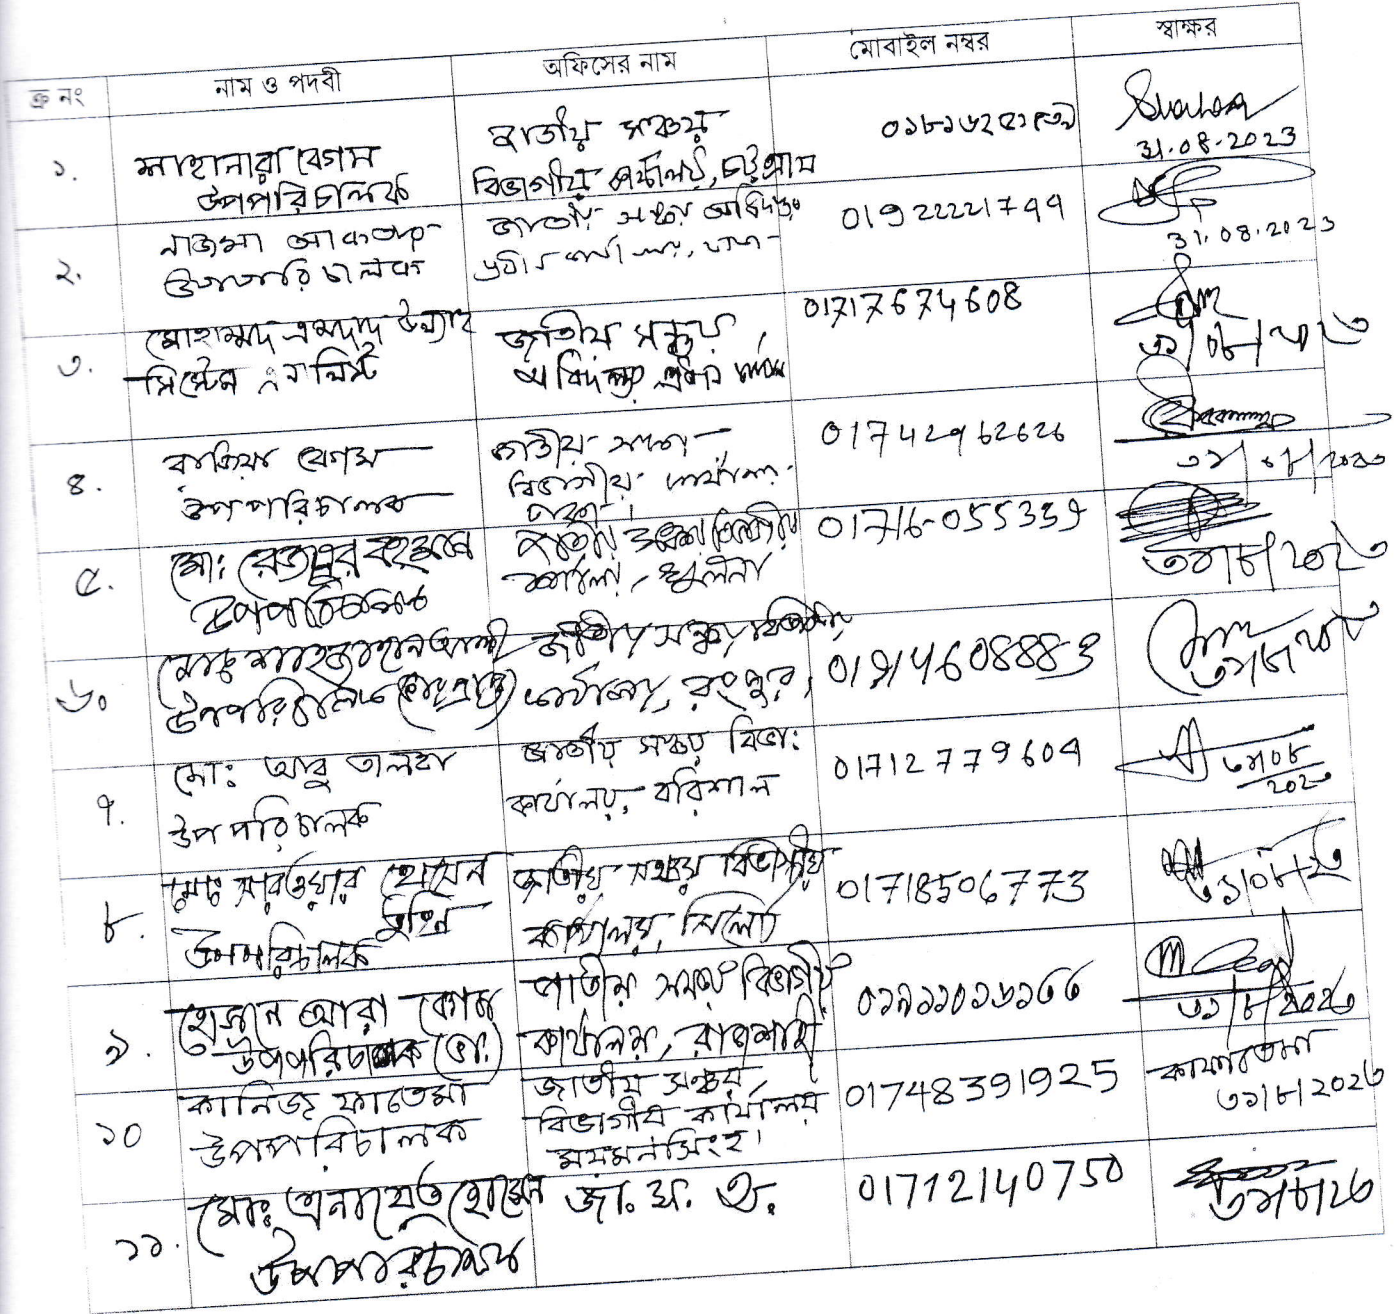 ক্র নং নাম ও পদবী অফিসের নাম মোবাইল নম্বর স্বাক্ষর
১. শাহানারা বেগম
উপপরিচালক
জাতীয় সঞ্চয়
বিভাগীয় কার্যালয়, চট্টগ্রাম
31.08.2023
২. নাজমা আকতার
উপপরিচালক
জাতীয় সঞ্চয় অধিদপ্তর
প্রধান কার্যালয়, ঢাকা
31.08.2023
৩. মোহাম্মদ এমদাদ উল্যাহ
সিস্টেম এনালিস্ট
জাতীয় সঞ্চয়
অধিদপ্তর প্রধান
01717674608
৩১/০৮/২০২৩
৪. রাজিয়া বেগম
উপপরিচালক
জাতীয় সঞ্চয়
বিভাগীয় কার্যালয়
ঢাকা।
৫. মো: রেজানুর রহমান
উপপরিচালক
জাতীয় সঞ্চয় বিভাগীয়
কার্যালয়, খুলনা
01716-055339
৩১/৮/২০২৩
৬. মোঃ শাহজাহান আলী
উপপরিচালক (ভারপ্রাপ্ত)
জাতীয় সঞ্চয় বিভাগীয়
কার্যালয়, রংপুর,
৭. মো: আবু তালেব
উপপরিচালক
জাতীয় সঞ্চয় বিভা:
কার্যালয়, বরিশাল
0171277960৭
৩১/০৮
২০২৩
৮. মোঃ সারওয়ার হোসেন
উপপরিচালক
জাতীয় সঞ্চয় বিভাগীয়
কার্যালয়, সিলেট
01718506773
৩১/০৮/২৩
৯. হোসনে আরা বেগম
উপপরিচালক (ভা:)
জাতীয় সঞ্চয় বিভাগীয়
কার্যালয়, রাজশাহী
৩১/৮/২০২৩
১০ কানিজ ফাতেমা
উপপরিচালক
জাতীয় সঞ্চয়
বিভাগীয় কার্যালয়
ময়মনসিংহ।
01748391925
৩১/৮/২০২৩
১১. মোঃ এনায়েত হোসেন
উপপরিচালক
জা. স. অ.
01712140750
৩১/৮/২৩